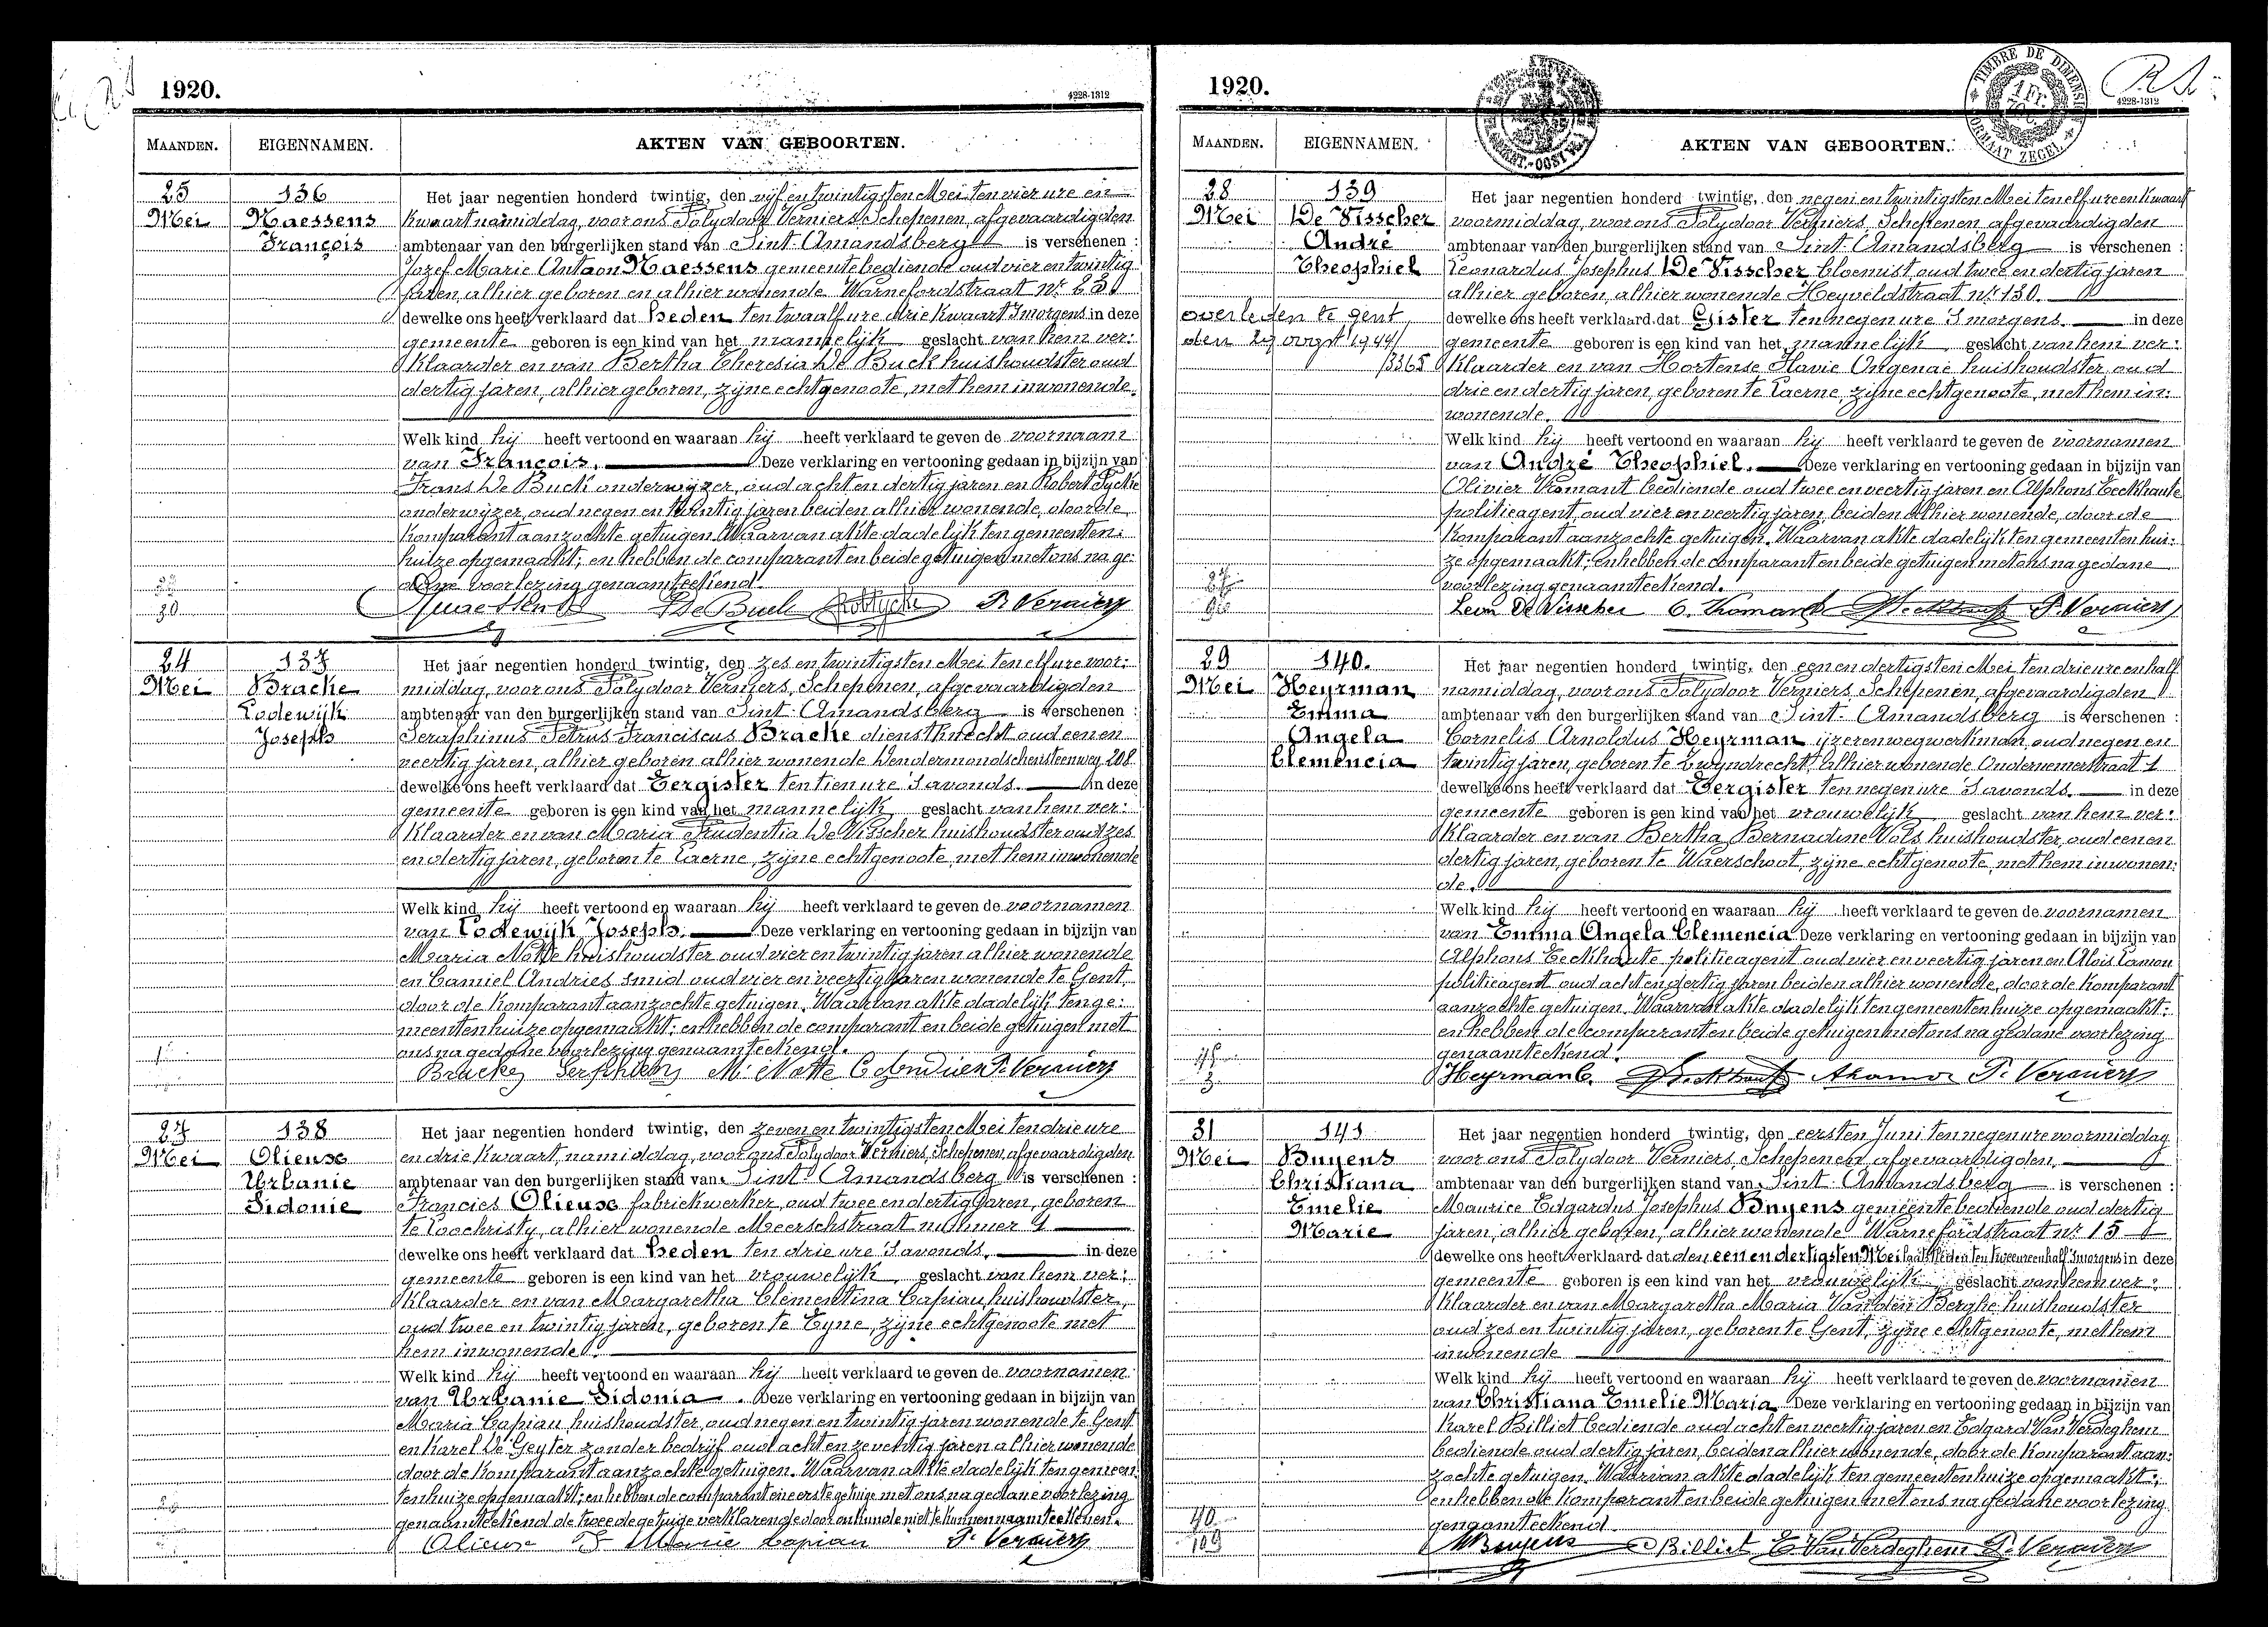 1920.
4228-1312
MAANDEN.
EIGENNAMEN.
AKTEN VAN GEBOORTEN.
25
Mei
136
Naessens
François
Het jaar negentien honderd twintig, den vijf en twintigsten Mei ten vier ure en
kwaart namiddag, voor ons Polydoor Verniers Schepenen, afgevaardigden
ambtenaar van den burgerlijken stand van Sint-Amandsberg is verschenen :
Jozef Marie Antoon Naessens gemeentebediende oud vier en twintig
jaren, alhier geboren en alhier wonende Warnefordstraat Nr
dewelke ons heeft verklaard dat heden ten twaalf ure drie kwaart 's morgens in deze
gemeente geboren is een kind van het mannelijk geslacht van hem ver:
klaarder en van Bertha Theresia De Buck huishoudster oud
dertig jaren, alhier geboren, zijne echtgenoote, met hem inwonende.
Welk kind hij heeft vertoond en waaraan hij heeft verklaard te geven de voornaam
van François. Deze verklaring en vertooning gedaan in bijzijn van
Frans De Buck onderwijzer, oud acht en dertig jaren en Robert Tycke
onderwijzer, oud negen en twintig jaren beiden alhier wonende, door de
komparant aanzochte getuigen. Waarvan akte dadelijk ten gemeenten:
huize opgemaakt; en hebben de comparant en beide getuigen met ons na ge:
dane voorlezing genaamteekend.
30
Naessens De Buck P. Verniers
24
Mei
137
Bracke
Lodewijk
Joseph
Het jaar negentien honderd twintig, den zes en twintigsten Mei ten elf ure voor:
middag, voor ons Polydoor Verniers, Schepenen, afgevaardigden
ambtenaar van den burgerlijken stand van Sint-Amandsberg is verschenen :
Seraphinus Petrus Franciscus Bracke dienstknecht oud een en
veertig jaren, alhier geboren alhier wonende Dendermondschensteenweg 208
dewelke ons heeft verklaard dat Eergister ten tien ure 's avonds. in deze
gemeente geboren is een kind van het mannelijk geslacht van hem ver:
klaarder en van Maria Prudentia De Visscher huishoudster oud zes
en dertig jaren, geboren te Laerne, zijne echtgenoote, met hem inwonende
Welk kind hij heeft vertoond en waaraan hij heeft verklaard te geven de voornamen
van Lodewijk Joseph. Deze verklaring en vertooning gedaan in bijzijn van
Maria Notte huishoudster oud vier en twintig jaren alhier wonende
en Camiel Andries smid oud vier en veertig jaren wonende te Gent,
door de komparant aanzochte getuigen. Waarvan akte dadelijk ten ge:
meentenhuize opgemaakt; en hebben de comparant en beide getuigen met
ons na gedane voorlezing genaamteekend.
1
Bracke Serphien M. Notte C Andries P. Verniers
27
Mei
138
Olieuse
Urbanie
Sidonie
Het jaar negentien honderd twintig, den zeven en twintigsten Mei ten drie ure
en drie kwaart, namiddag, voor ons Polydoor Verniers, Schepenen, afgevaardigden
ambtenaar van den burgerlijken stand van Sint-Amandsberg is verschenen :
Francies Olieuse fabriekwerker, oud twee en dertig jaren, geboren
te Loochristy, alhier wonende Meerschstraat nummer 1
dewelke ons heeft verklaard dat heden ten drie ure 's avonds, in deze
gemeente geboren is een kind van het vrouwelijk geslacht van hem ver:
klaarder en van Margaretha Clementina Capiau, huishoudster,
oud twee en twintig jaren, geboren te Eyne, zijne echtgenoote met
hem inwonende.
Welk kind hij heeft vertoond en waaraan hij heeft verklaard te geven de voornamen
van Urbanie Sidonia. Deze verklaring en vertooning gedaan in bijzijn van
Maria Capiau, huishoudster, oud negen en twintig jaren wonende te Gent
en Karel De Geyter zonder bedrijf oud acht en zeventig jaren alhier wonende
door de komparant aanzochte getuigen. Waarvan akte dadelijk ten gemeen:
tenhuize opgemaakt; en hebben de comparant en eerste getuige met ons na gedane voorlezing
genaamteekend de tweede getuige verklarende door onkunde niet te kunnen naamteekenen.
Olieuse F Marie Capiau P. Verniers
1920.
TIMBRE DE DIMENSION
FORMAAT ZEGEL
1 Fr.
4228-1312
MAANDEN.
EIGENNAMEN.
AKTEN VAN GEBOORTEN.
28
Mei
139
De Visscher
André
Theophiel
overleden te gent
den 29 oogst 1944
3365
Het jaar negentien honderd twintig, den negen en twintigsten Mei ten elf ure en kwaart
voormiddag, voor ons Polydoor Verniers, Schepenen afgevaardigden
ambtenaar van den burgerlijken stand van Sint-Amandsberg is verschenen :
Leonardus Josephus De Visscher bloemist oud twee en dertig jaren
alhier geboren, alhier wonende Heyveldstraat nr 130.
dewelke ons heeft verklaard dat Gister ten negen ure 's morgens. in deze
gemeente geboren is een kind van het mannelijk geslacht van hem ver:
klaarder en van Hortense Flavie Ongenae huishoudster oud
drie en dertig jaren, geboren te Laerne, zijne echtgenoote, met hem in:
wonende.
Welk kind hij heeft vertoond en waaraan hij heeft verklaard te geven de voornamen
van André Theophiel. Deze verklaring en vertooning gedaan in bijzijn van
Olivier Vromant bediende oud twee en veertig jaren en Alphons Eeckhaute
politieagent, oud vier en veertig jaren, beiden alhier wonende, door de
komparant aanzochte getuigen. Waarvan akte dadelijk ten gemeenten hui:
ze opgemaakt; en hebben de comparant en beide getuigen met ons na gedane
voorlezing genaamteekend.
Leon De Visscher O. Vromant Eeckhaute P. Verniers
29
Mei
140.
Heyrman
Emma
Angela
Clemencia
Het jaar negentien honderd twintig, den een en dertigsten Mei ten drie ure en half
namiddag, voor ons Polydoor Verniers, Schepenen, afgevaardigden
ambtenaar van den burgerlijken stand van Sint-Amandsberg is verschenen :
Cornelis Arnoldus Heyrman ijzerenwegwerkman, oud negen en
twintig jaren, geboren te Zwyndrecht, alhier wonende Ondernemerstraat 1
dewelke ons heeft verklaard dat Eergister ten negen ure 's avonds. in deze
gemeente geboren is een kind van het vrouwelijk geslacht van hem ver:
klaarder en van Bertha Bernadine Vols huishoudster, oud een en
dertig jaren, geboren te Waerschoot, zijne echtgenoote, met hem inwonen:
de.
Welk kind hij heeft vertoond en waaraan hij heeft verklaard te geven de voornamen
van Emma Angela Clemencia Deze verklaring en vertooning gedaan in bijzijn van
Alphons Eeckhaute politieagent oud vier en veertig jaren en Alois
politieagent oud acht en dertig jaren beiden alhier wonende, door de komparant
aanzochte getuigen. Waarvan akte dadelijk ten gemeenten huize opgemaakt;
en hebben de comparant en beide getuigen met ons na gedane voorlezing
genaamteekend.
3
Heyrman C. Eeckhaute P. Verniers
31
Mei
141
Buyens
Christiana
Emelie
Marie
Het jaar negentien honderd twintig, den eersten Juni ten negen ure voormiddag
voor ons Polydoor Verniers, Schepenen afgevaardigden.
ambtenaar van den burgerlijken stand van Sint Amandsberg is verschenen :
Maurice Edgardus Josephus Buyens gemeentebediende oud dertig
jaren, alhier geboren, alhier wonende Warnefordstraat nr 15
dewelke ons heeft verklaard dat den een en dertigsten Mei laatstleden ten twee ure en half 's morgens in deze
gemeente geboren is een kind van het vrouwelijk geslacht van hem ver:
klaarder en van Margaretha Maria Van den Berghe huishoudster
oud zes en twintig jaren, geboren te Gent, zijne echtgenoote, met hem
inwonende
Welk kind hij heeft vertoond en waaraan hij heeft verklaard te geven de voornamen
van Christiana Emelie Maria Deze verklaring en vertooning gedaan in bijzijn van
Karel Billiet bediende oud acht en veertig jaren en Edgard Van Verdeghem
bediende oud dertig jaren, beiden alhier wonende, door de komparant aan:
zochte getuigen. Waarvan akte dadelijk ten gemeentenhuize opgemaakt;
en hebben de komparant en beide getuigen met ons na gedane voorlezing
genaamteekend.
40
109
MBuyens Billiet E Van Verdeghem P. Verniers